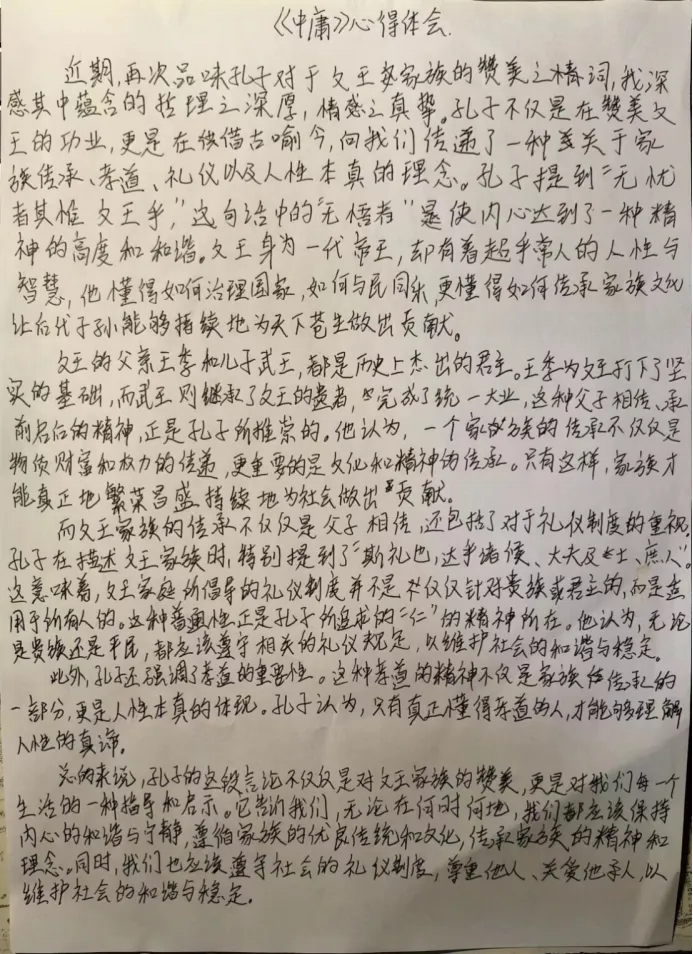 《中庸》心得体会.
近期,再次品味孔子对于文王家族的赞美之情词,我深
感其中蕴含的哲理之深厚,情感之真挚。孔子不仅是在赞美文
王的功业,更是在借古喻今,向我们传递了一种关于家
族传承、孝道、礼仪以及人性本真的理念。孔子提到“无忧
者其惟文王乎,”这句话中的“无悟者”是使内心达到了一种精
神的高度和和谐。文王身为一代帝王,却有着超乎常人的人性与
智慧,他懂得如何治理国家,如何与民同乐,更懂得如何传承家族文化
让后代子孙能够持续地为天下苍生做出贡献。
文王的父亲王季和儿子武王,都是历史上杰出的君主。王季为文王打下了坚
实的基础,而武王则继承了文王的遗者,完成了统一大业,这种父子相传、承
前启后的精神,正是孔子所推崇的。他认为,一个家族的传承不仅仅是
物质财富和权力的传递,更重要的是文化和精神的传承。只有这样,家族才
能真正地繁荣昌盛持续地为社会做出贡献。
而文王家族的传承不仅仅是父子相传,还包括了对于礼仪制度的重视,
孔子在描述文王家族时,特别提到了“斯礼也,达乎诸候、大夫及士、庶人”。
这意味着,文王家庭所倡导的礼仪制度并不是仅仅针对贵族或君主的,而是适
用于所有人的。这种普遍性正是孔子所追求的“仁”的精神所在。他认为,无论
是贵族还是平民,都应该遵守相关的礼仪规定,以维护社会的和谐与稳定。
此外,孔子还强调了孝道的重要性。这种孝道的精神不仅是家族传承的
一部分,更是人性本真的体现。孔子认为,只有真正懂得孝道的人,才能够理解
人性的真谛。
总的来说,孔子的这段言论不仅仅是对文王家族的赞美,更是对我们每一个
生活的一种指导和启示。它告诉我们,无论在何时何地,我们都应该保持
内心的和谐与宁静,遵循家族的优良传统和文化,传承家族的精神和
理念。同时,我们也应该遵守社会的礼仪制度,尊重他人、关爱他人,以
维护社会的和谐与稳定。